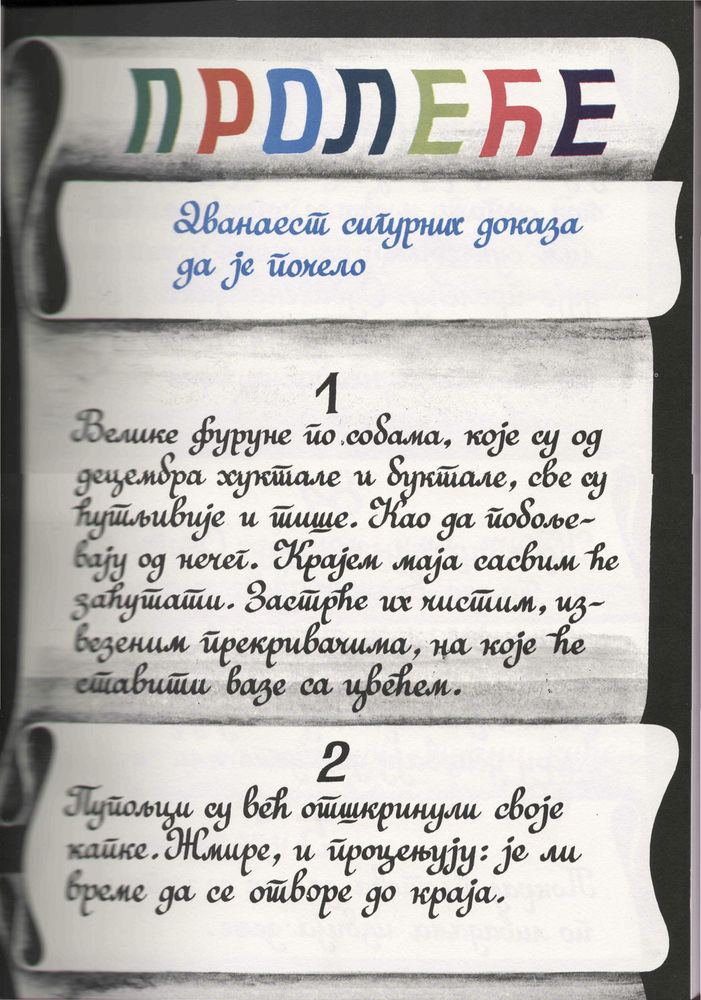 ПРОЛЕЋЕ
Дванаест сигурних доказа
да је почело
1
Велике фуруне по собама, које су од
децембра хуктале и буктале, све су
ћутљивије и тише. Као да побоље-
вају од нечег. Крајем маја сасвим ће
заћутати. Застрће их чистим, из-
везеним прекривачима, на које ће
ставити вазе са цвећем.
2
Пупољци су већ отшкринули своје
капке. Жмире, и процењују: је ли
време да се отворе до краја.